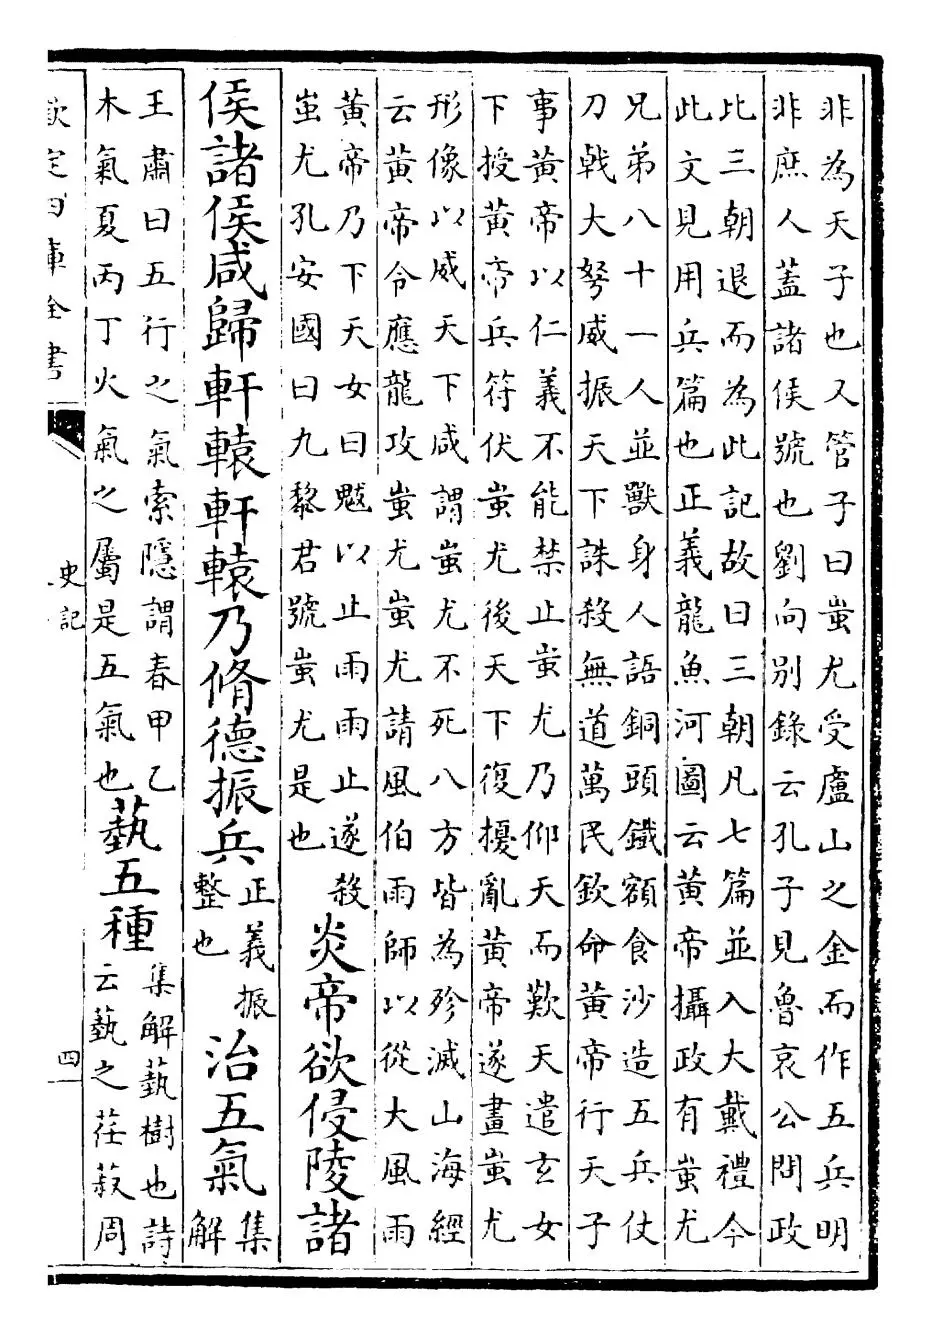 非為天子也又管子曰蚩尤受盧山之金而作五兵明
非庶人蓋諸侯號也劉向別錄云孔子見魯哀公問政
比三朝退而為此記故曰三朝凡七篇並入大戴禮今
此文見用兵篇也正義龍魚河圖云黃帝攝政有蚩尤
兄弟八十一人並獸身人語銅頭鐵額食沙造五兵仗
刀戟大弩威振天下誅殺無道萬民欽命黃帝行天子
事黃帝以仁義不能禁止蚩尤乃仰天而歎天遣玄女
下授黃帝兵符伏蚩尤後天下復擾亂黃帝遂畫蚩尤
形像以威天下咸謂蚩尤不死八方皆為殄滅山海經
云黃帝令應龍攻蚩尤蚩尤請風伯雨師以從大風雨
黃帝乃下天女曰魃以止雨雨止遂殺
蚩尤孔安國曰九黎君號蚩尤是也
炎帝欲侵陵諸
侯諸侯咸歸軒轅軒轅乃脩德振兵
正義振
整也
治五氣
集
解
王肅曰五行之氣索隱謂春甲乙
木氣夏丙丁火氣之屬是五氣也
蓺五種
集解蓺樹也詩
云蓺之荏菽周
欽定四庫全書
史記
四